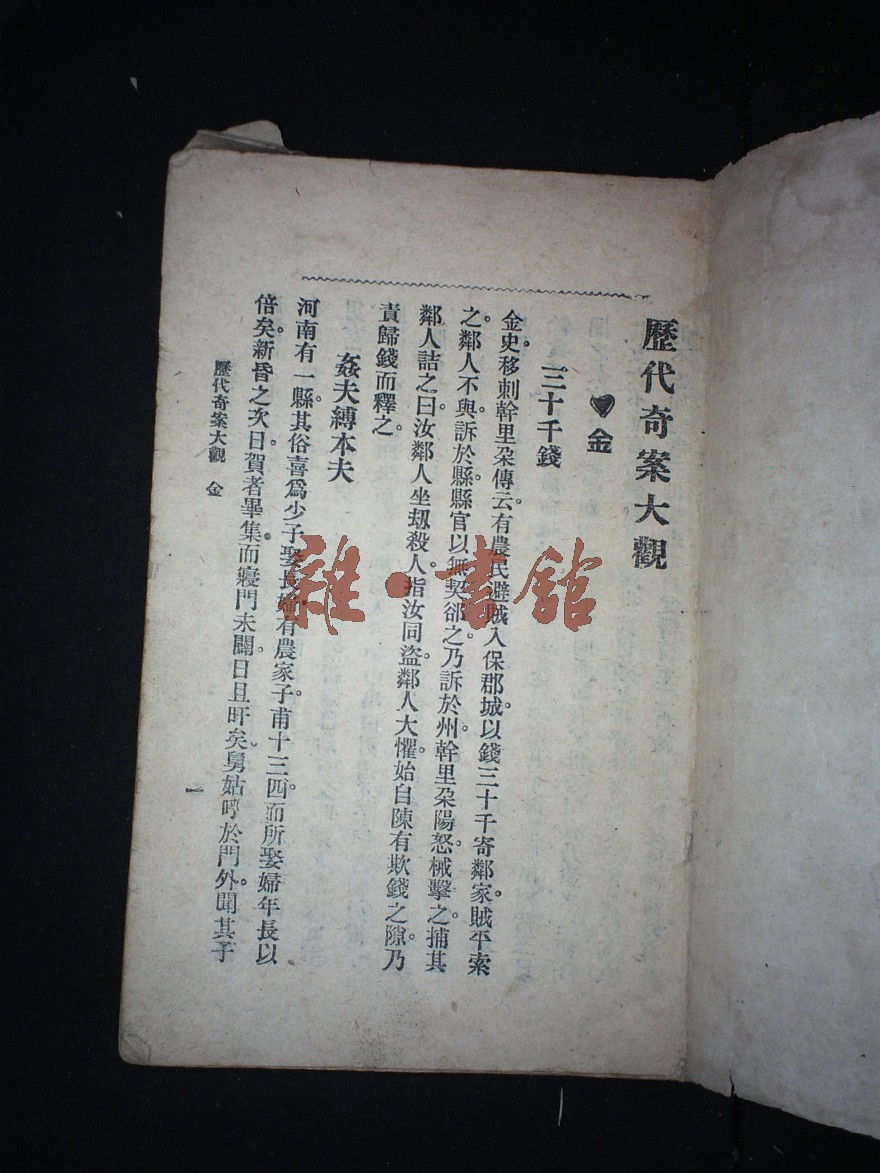 歷代奇案大觀
♥金
三十千錢
金史移剌幹里朶傳云。有農民避賊入保郡城。以錢三十千寄鄰家。賊平索
之。鄰人不與。訴於縣。縣官以無契卻之。乃訴於州。幹里朶陽怒。械擊之。捕其
鄰人詰之曰。汝鄰人坐刼殺人。指汝同盜。鄰人大懼。始自陳有欺錢之隙。乃
責歸錢而釋之。
姦夫縛本夫
河南有一縣。其俗喜爲少子娶長婦。有農家子甫十三四。而所娶婦年長以
倍矣。新昏之次日。賀者畢集。而寢門未闢。日且旰矣。舅姑呼於門外。聞其子
歷代奇案大觀 金
一
雜·書館